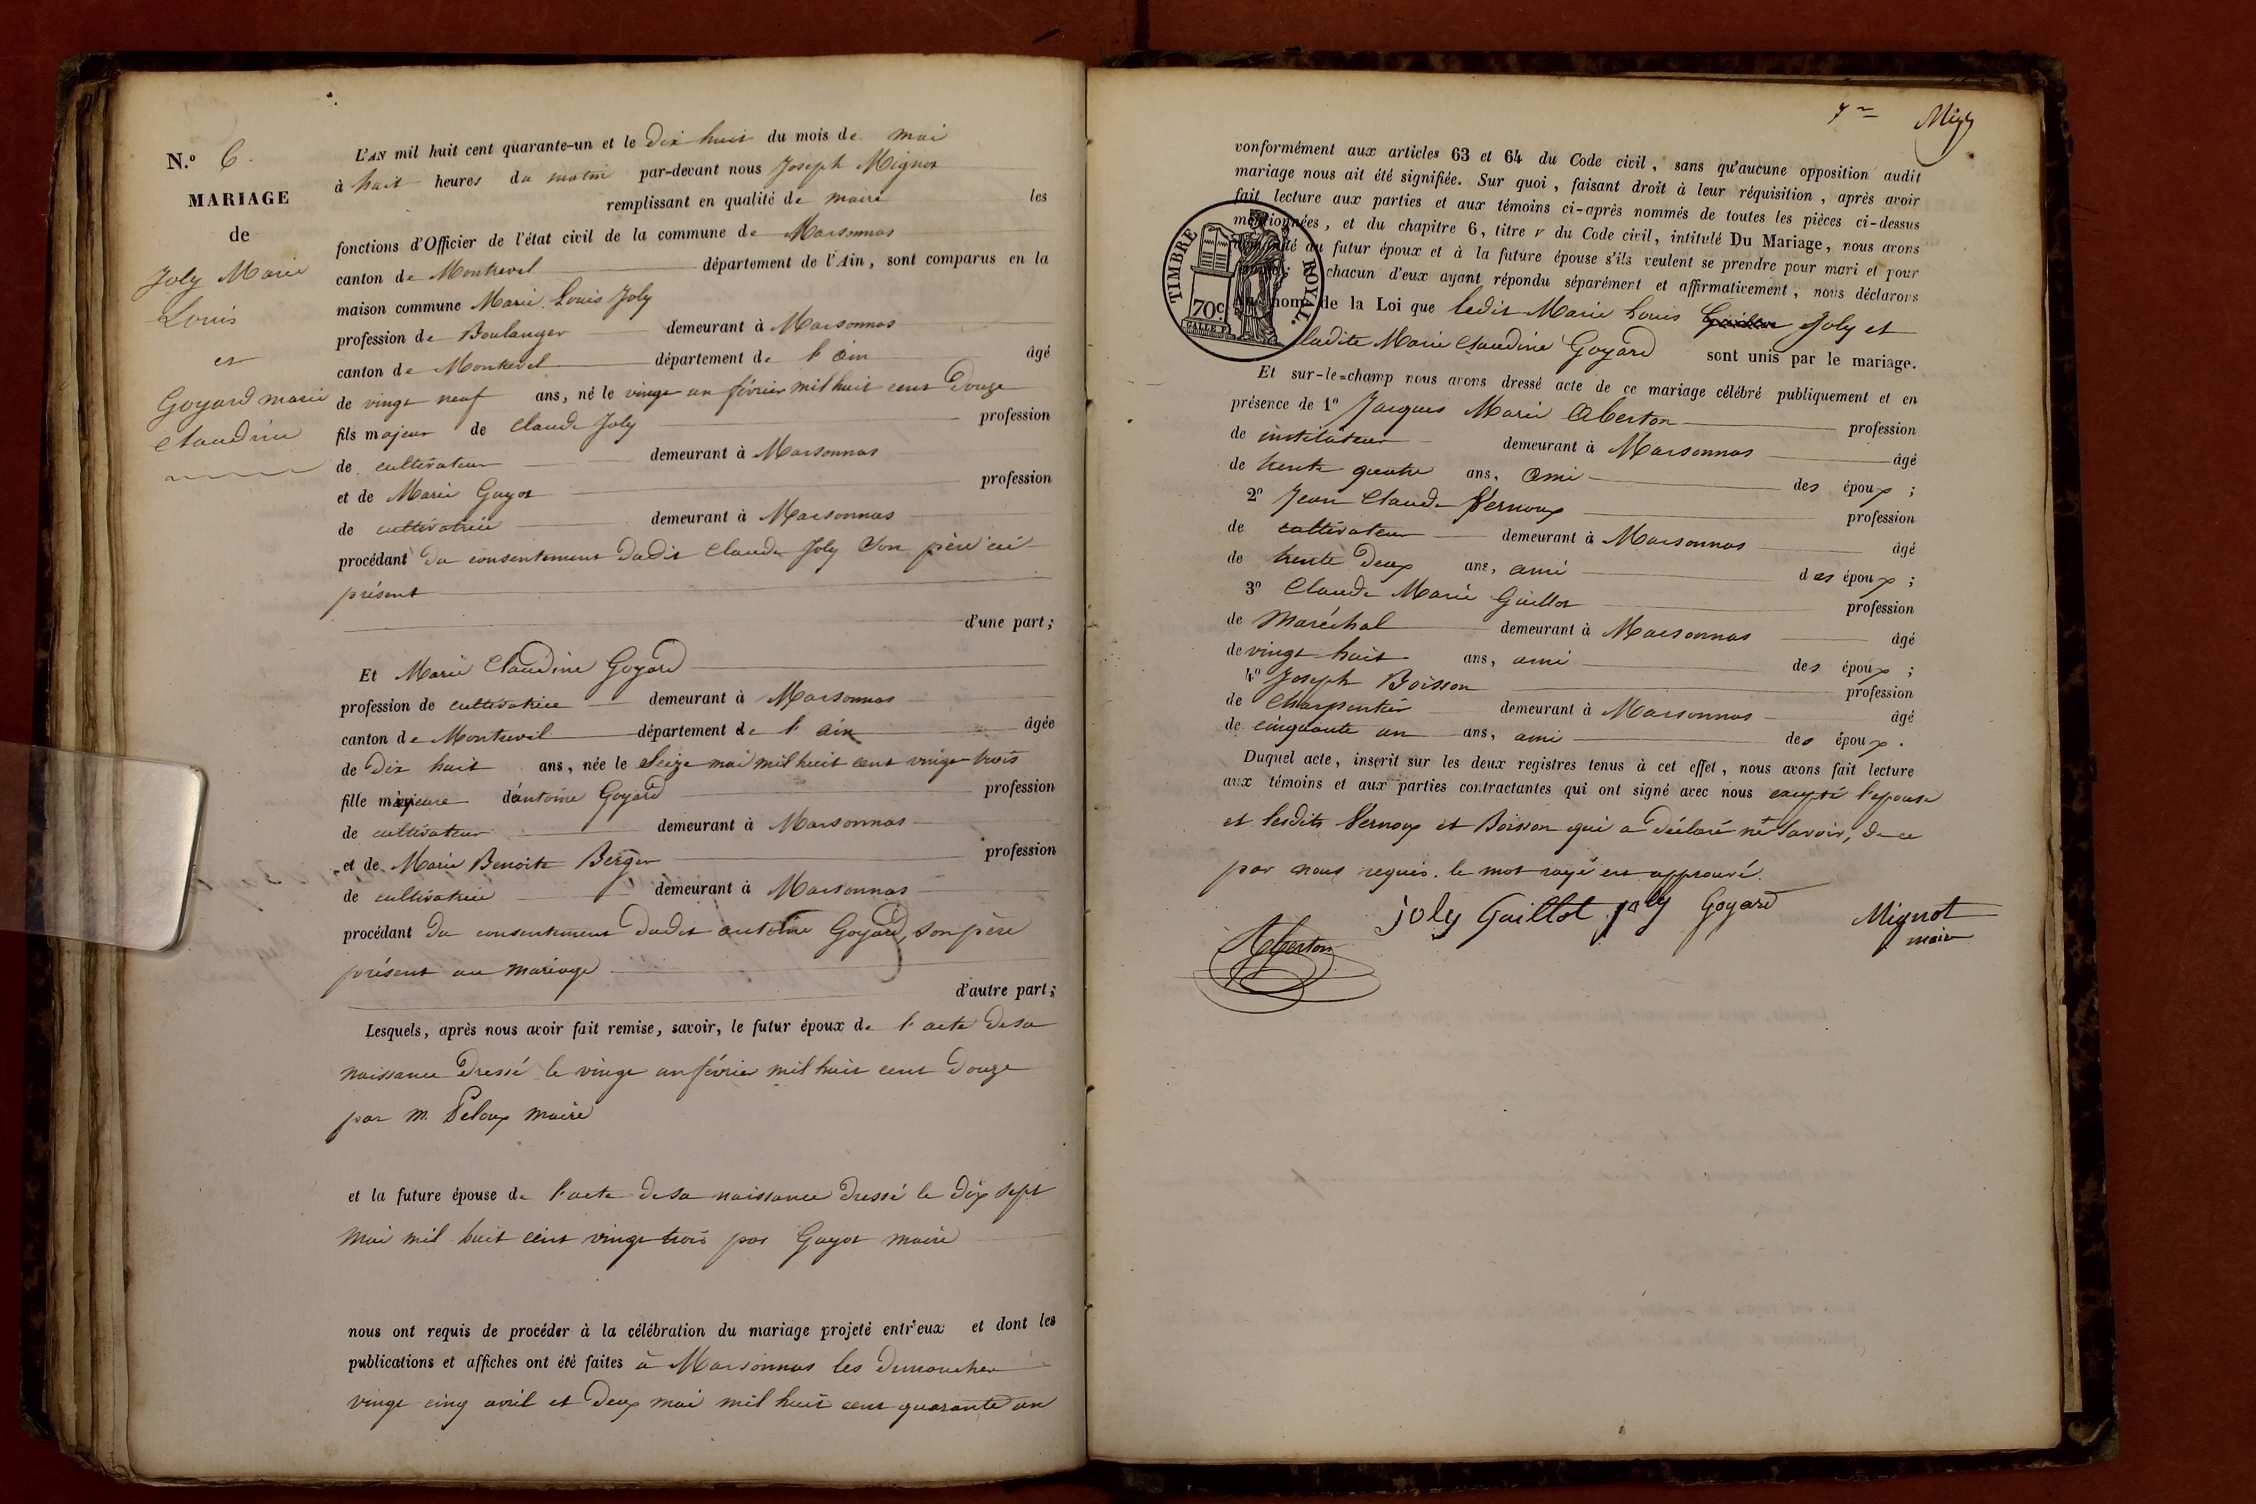 N.º 6.
MARIAGE
de
Joly Marie
Louis
et
Goyard marie
claudine
L'AN mil huit cent quarante-un et le dix huit du mois de mai
à huit heures du matin par-devant nous Joseph Mignot
remplissant en qualité de maire les
fonctions d'Officier de l'état civil de la commune de Marsonnas
canton de Montrevel département de l'Ain, sont comparus en la
maison commune Marie Louis Joly
profession de Boulanger demeurant à Marsonnas
canton de Montrevel département de l'ain âgé
de vingt neuf ans, né le vingt un février mil huit cent douze
fils majeur de Claude Joly profession
de cultivateur demeurant à Marsonnas
et de Marie Guyot profession
de cultivatrice demeurant à Marsonnas
procédant du consentement dudit Claude Joly son père ici
présent
d'une part;
Et Marie Claudine Goyard
profession de cultivatrice demeurant à Marsonnas
canton de Montrevel département de l'ain âgée
de dix huit ans, née le seize mai mil huit cent vingt trois
fille mineure d'antoine Goyard profession
de cultivateur demeurant à Marsonnas
et de Marie Benoite Berger profession
de cultivatrice demeurant à Marsonnas
procédant du consentement dudit antoine Goyard, son père
présent au mariage
d'autre part;
Lesquels, après nous avoir fait remise, savoir, le futur époux de l'acte de sa
naissance dressé le vingt un février mil huit cent douze
par m. Peloux maire
et la future épouse de l'acte de sa naissance dressé le dix sept
mai mil huit cent vingt trois par Guyot maire
nous ont requis de procéder à la célébration du mariage projeté entr'eux et dont les
publications et affiches ont été faites à Marsonnas les dimanches
vingt cinq avril et deux mai mil huit cent quarante un
7me Migt
conformément aux articles 63 et 64 du Code civil, sans qu'aucune opposition audit
mariage nous ait été signifiée. Sur quoi, faisant droit à leur réquisition, après avoir
fait lecture aux parties et aux témoins ci-après nommés de toutes les pièces ci-dessus
mentionnées, et du chapitre 6, titre v du Code civil, intitulé Du Mariage, nous avons
demandé au futur époux et à la future épouse s'ils veulent se prendre pour mari et pour
chacun d'eux ayant répondu séparément et affirmativement, nous déclarons
au nom de la Loi que ledit Marie Louis Joly et
ladite Marie Claudine Goyard sont unis par le mariage.
TIMBRE ROYAL.
70c.
Et sur-le-champ nous avons dressé acte de ce mariage célébré publiquement et en
présence de 1º Jacques Marie Aberton profession
de instituteur demeurant à Marsonnas âgé
de trente quatre ans, ami des époux;
2º Jean Claude Vernoux profession
de cultivateur demeurant à Marsonnas âgé
de trente deux ans, ami des époux;
3º Claude Marie Guillot profession
de Maréchal demeurant à Marsonnas âgé
de vingt huit ans, ami des époux;
4º Joseph Boisson profession
de Charpentier demeurant à Marsonnas âgé
de cinquante un ans, ami des époux.
Duquel acte, inscrit sur les deux registres tenus à cet effet, nous avons fait lecture
aux témoins et aux parties contractantes qui ont signé avec nous excepté l'épouse
et lesdits Vernoux et Boisson qui a déclaré ne savoir, de ce
par nous requis. le mot rayé est approuvé.
joly Guillot joly Goyard Mignot
maire
Aberton